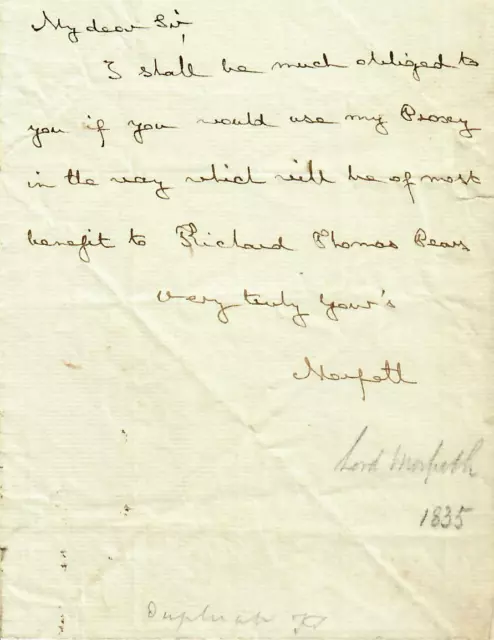 My dear Sir,
I shall be much obliged to
you if you would use my Proxy
in the way which will be of most
benefit to Richard Thomas Pears
very truly your's
Morpeth
Lord Morpeth
1835
Duplicate